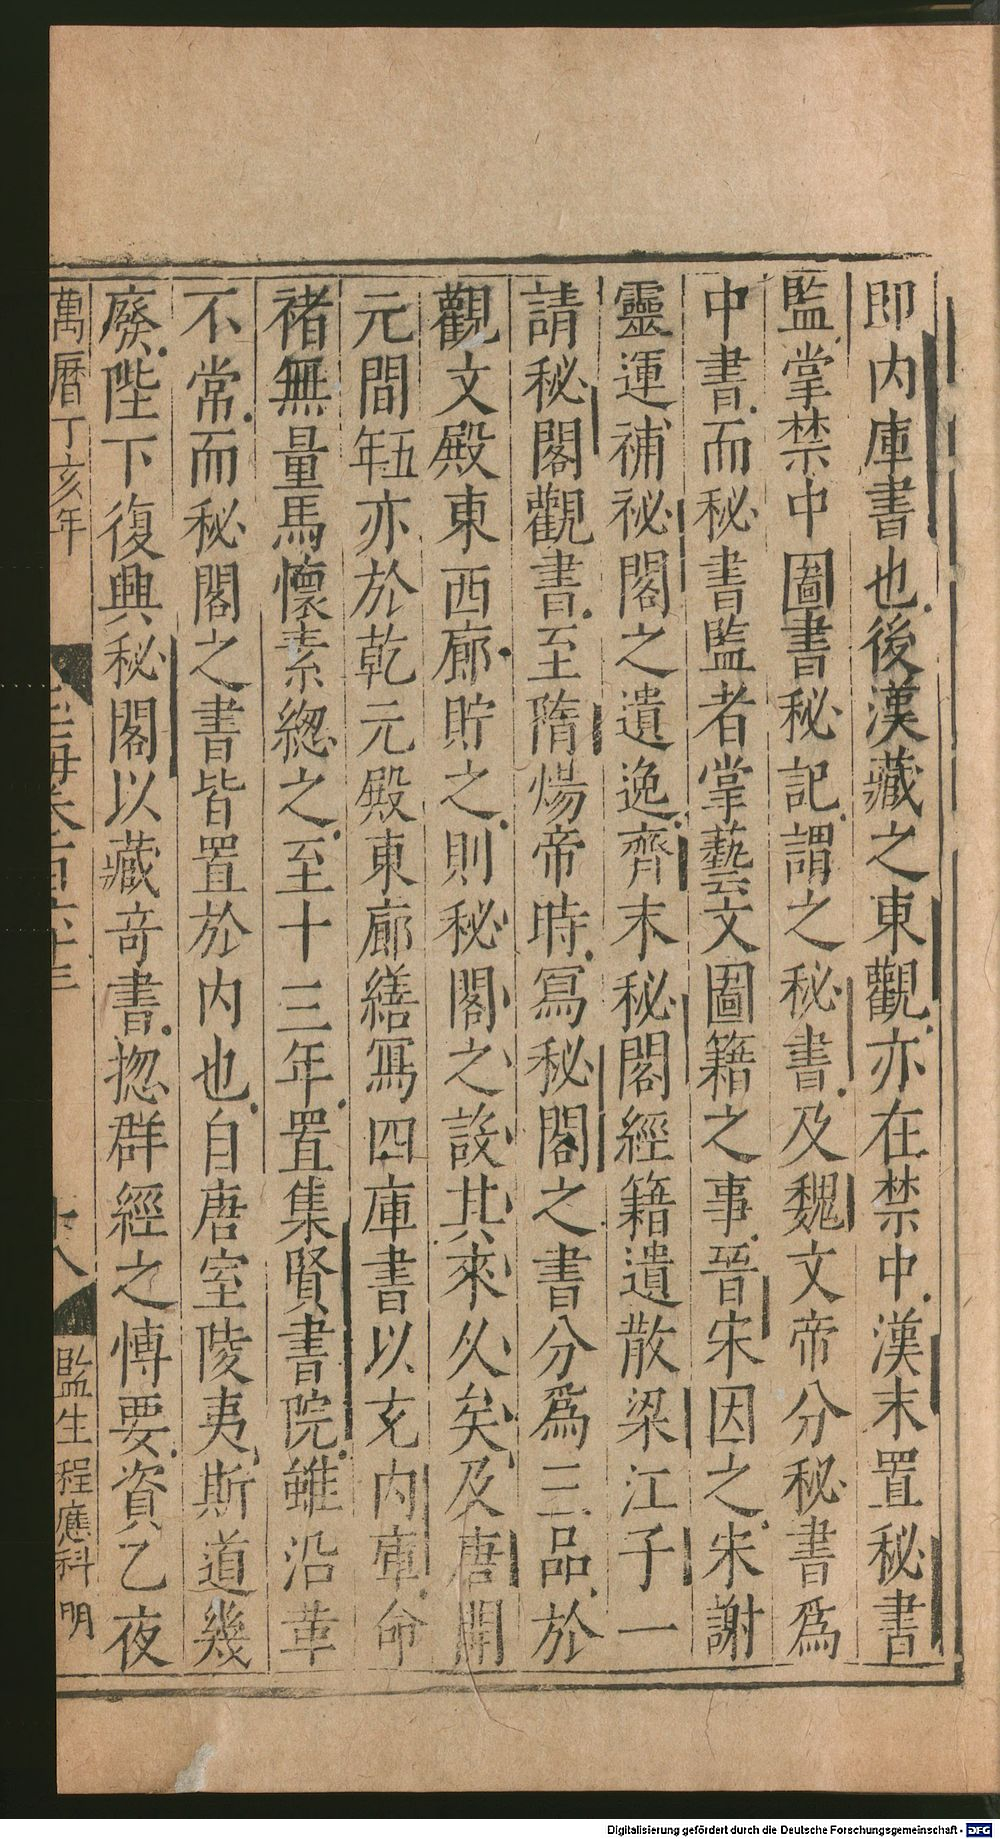 即内庫書也後漢藏之東觀亦在禁中漢末置秘書
監掌禁中圖書秘記謂之秘書及魏文帝分秘書爲
中書而秘書監者掌藝文圖籍之事晉宋因之宋謝
靈運補秘閣之遺逸齊末秘閣經籍遺散梁江子一
請秘閣觀書至隋煬帝時寫秘閣之書分爲三品於
觀文殿東西廊貯之則秘閣之設其來久矣及唐開
元間五年亦於乾元殿東廊繕寫四庫書以充内庫命
褚無量馬懷素緫之至十三年置集賢書院雖沿革
不常而秘閣之書皆置於内也自唐室陵夷斯道幾
廢陛下復興秘閣以藏竒書揔群經之愽要資乙夜
萬曆丁亥年
海卷百六十三
十八
監生程應科明
Digitalisierung gefördert durch die Deutsche Forschungsgemeinschaft - DFG